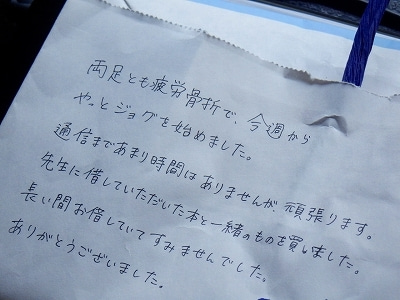 両足とも疲労骨折で、今週から
やっとジョグを始めました。
通信まであまり時間はありませんが、頑張ります。
先生に借していただいた本と一緒のものを買いました。
長い間お借していてすみませんでした。
ありがとうございました。